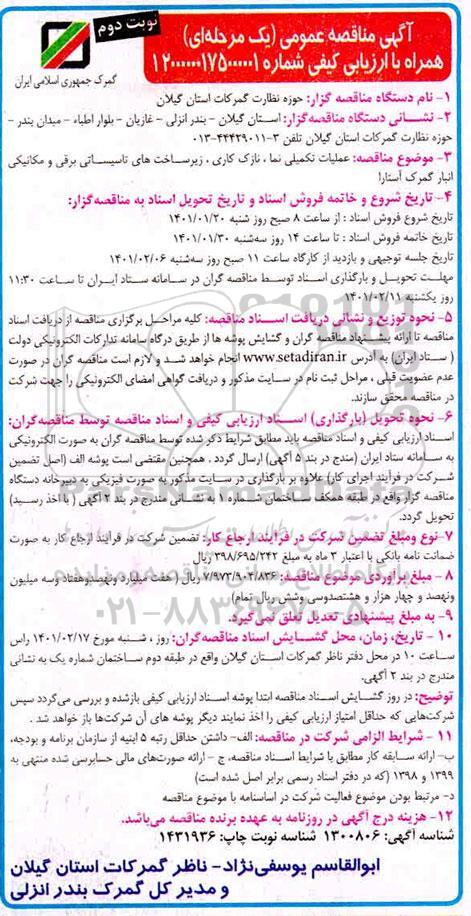 نوبت دوم
آگهی مناقصه عمومی (یک مرحله‌ای)
همراه با ارزیابی کیفی شماره ۱۲۰۰۰۰۰۰۱۷۵۰۰۰۰۰۱
گمرک جمهوری اسلامی ایران
۱- نام دستگاه مناقصه گزار: حوزه نظارت گمرکات استان گیلان
۲- نشانی دستگاه مناقصه‌گزار: استان گیلان - بندر انزلی - غازیان - بلوار اطباء - میدان بندر -
حوزه نظارت گمرکات استان گیلان تلفن ۳-۴۴۴۳۹۰۱۱-۰۱۳
۳- موضوع مناقصه: عملیات تکمیلی نما ، نازک کاری ، زیرساخت های تاسیساتی برقی و مکانیکی
انبار گمرک آستارا
۴- تاریخ شروع و خاتمه فروش اسناد و تاریخ تحویل اسناد به مناقصه‌گزار:
تاریخ شروع فروش اسناد : از ساعت ۸ صبح روز شنبه ۱۴۰۱/۰۱/۲۰
تاریخ خاتمه فروش اسناد : تا ساعت ۱۴ روز سه‌شنبه ۱۴۰۱/۰۱/۳۰
تاریخ جلسه توجیهی و بازدید از کارگاه ساعت ۱۱ صبح روز سه‌شنبه ۱۴۰۱/۰۲/۰۶
مهلت تحویل و بارگذاری اسناد توسط مناقصه گران در سامانه ستاد ایران تا ساعت ۱۱:۳۰
روز یکشنبه ۱۴۰۱/۰۲/۱۱
۵- نحوه توزیع و نشانی دریافت اسناد مناقصه: کلیه مراحل برگزاری مناقصه از دریافت اسناد
مناقصه تا ارائه پیشنهاد مناقصه گران و گشایش پوشه ها از طریق درگاه سامانه تدارکات الکترونیکی دولت
( ستاد ایران) به آدرس www.setadiran.ir انجام خواهد شد و لازم است مناقصه گران در صورت
عدم عضویت قبلی ، مراحل ثبت نام در سایت مذکور و دریافت گواهی امضای الکترونیکی را جهت شرکت
در مناقصه محقق سازند.
۶- نحوه تحویل (بارگذاری) اسناد ارزیابی کیفی و اسناد مناقصه توسط مناقصه‌گران:
اسناد ارزیابی کیفی و اسناد مناقصه باید مطابق شرایط ذکر شده توسط مناقصه گران به صورت الکترونیکی
به سامانه ستاد ایران (مندج در بند ۵ آگهی) ارسال گردد . همچنین مقتضی است پوشه الف (اصل تضمین
شرکت در فرآیند اجرای کار) علاوه بر بارگذاری در سایت مذکور به صورت فیزیکی به دبیرخانه دستگاه
مناقصه گزار واقع در طبقه همکف ساختمان شماره ۱ به نشانی مندرج در بند ۲ آگهی ( با اخذ رسید)
تحویل گردد.
۷- نوع ومبلغ تضمین شرکت در فرآیند ارجاع کار: تضمین شرکت در فرآیند ارجاع کار به صورت
ضمانت نامه بانکی با اعتبار ۳ ماه به مبلغ ۳۹۸/۶۹۵/۲۴۲ ریال
۸- مبلغ برآوردی موضوع مناقصه: ۷/۹۷۳/۹۰۴/۸۳۶ ریال ( هفت میلیارد ونهصدوهفتاد وسه میلیون
ونهصد و چهار هزار و هشتصدوسی وشش ریال تمام)
۹- به مبلغ پیشنهادی تعدیل تعلق نمی‌گیرد.
۱۰- تاریخ، زمان، محل گشایش اسناد مناقصه‌گران: روز ، شنبه مورخ ۱۴۰۱/۰۲/۱۷ راس
ساعت ۱۰ در محل دفتر ناظر گمرکات استان گیلان واقع در طبقه دوم ساختمان شماره یک به نشانی
مندرج در بند ۲ آگهی.
توضیح: در روز گشایش اسناد مناقصه ابتدا پوشه اسناد ارزیابی کیفی بازشده و بررسی می‌گردد سپس
شرکت‌هایی که حداقل امتیاز ارزیابی کیفی را اخذ نمایند دیگر پوشه های آن شرکت‌ها باز خواهد شد .
۱۱- شرایط الزامی شرکت در مناقصه: الف- داشتن حداقل رتبه ۵ ابنیه از سازمان برنامه و بودجه،
ب- ارائه سابقه کار مطابق با شرایط اسناد مناقصه، ج - ارائه صورت‌های مالی حسابرسی شده منتهی به
۱۳۹۹ و ۱۳۹۸ (که در دفتر اسناد رسمی برابر اصل شده است)
د- مرتبط بودن موضوع فعالیت شرکت در اساسنامه با موضوع مناقصه
۱۲- هزینه درج آگهی در روزنامه به عهده برنده مناقصه می‌باشد.
شناسه آگهی: ۱۳۰۰۸۰۶ شناسه نوبت چاپ: ۱۴۳۱۹۳۶
ابوالقاسم یوسفی‌نژاد- ناظر گمرکات استان گیلان
و مدیر کل گمرک بندر انزلی
۰۲۱-۸۸۳۴۹۶۷۰-۵